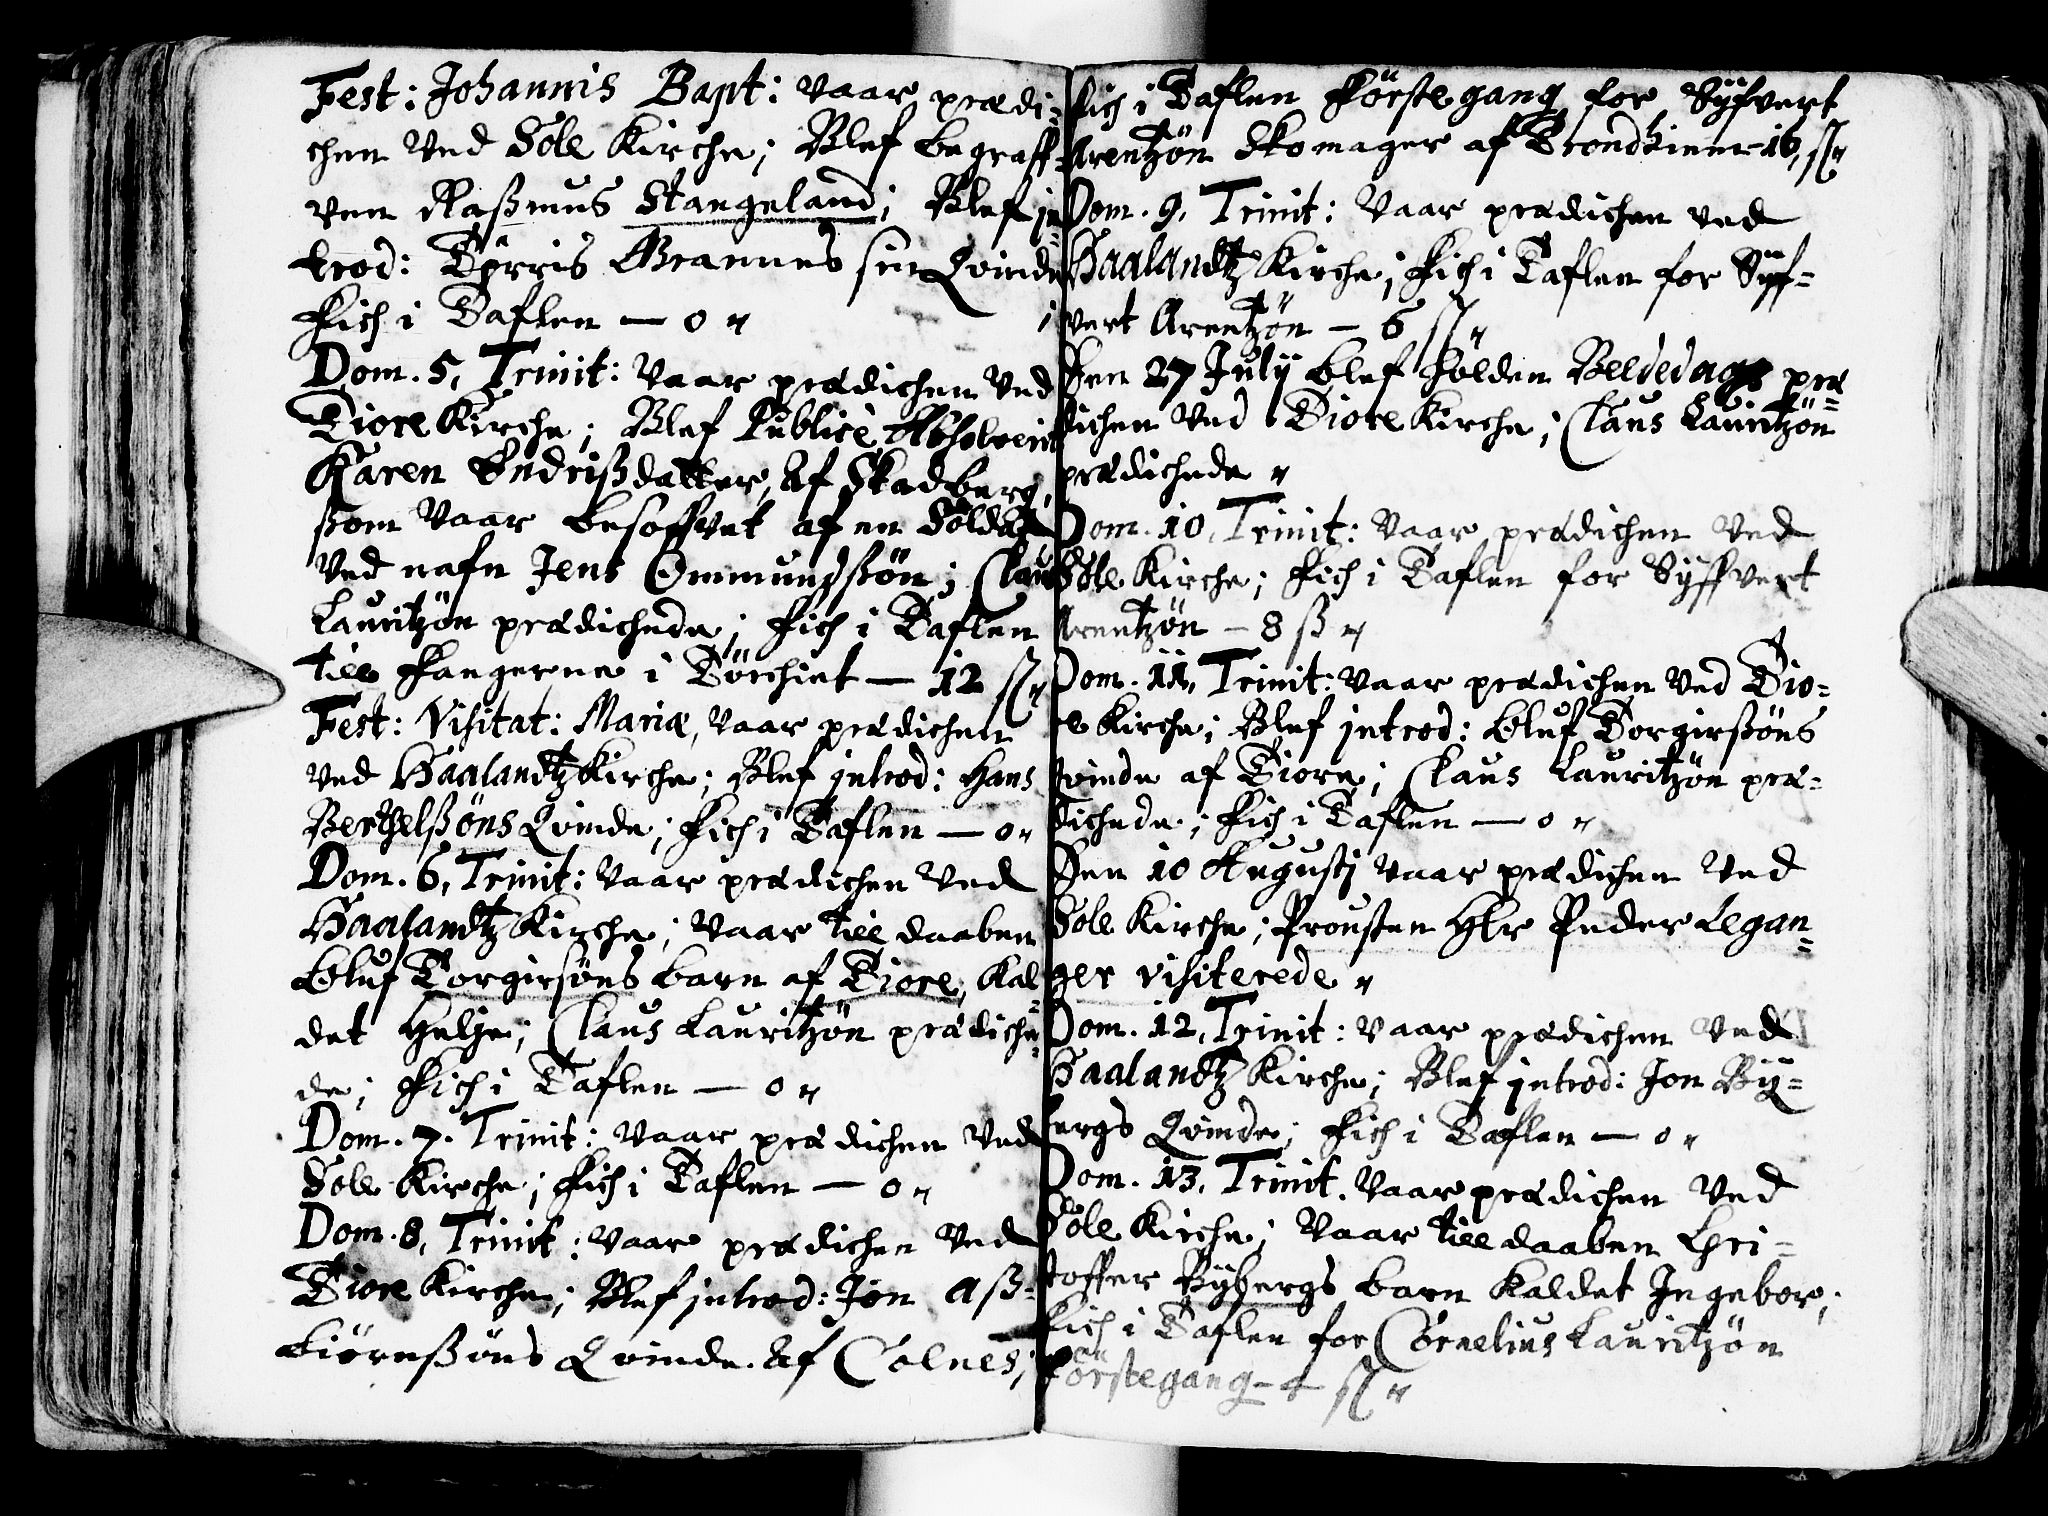 Fest: Johannis Bapt: vaar prædi=
chen ved Sole Kirche; Blef begraff=
ven Raßmus Stangeland; Blef jn=
trod: Tørris Grannes sin Qvinde;
Fich i Taflen — 0 "
Dom. 5, Trinit: vaar prædichen ved
Tiore Kirche; Blef Publicè Absolverit
Karen Endrißdatter, af Skadberg,
ßom vaar besoffvet af en Soldat
ved nafn Jens Ommundßøn; Claus
Lauritzøn prædichede; Fich i Taflen
till Fangerne i Törchiet — 12 ſſ"
Fest: Visitat: Mariæ, vaar prædichen
ved Haalandtz Kirche; Blef jntrod: Hans
Berthelßøns Qvinde; Fich i Taflen — 0 "
Dom. 6, Trinit: vaar prædichen ved
Haalandtz Kirche; vaar till daaben
Oluf Torgirsøns barn af Tiore, Kal=
det Helje; Claus Lauritzøn prædiche=
de; Fich i Taflen — 0 "
Dom. 7. Trinit: vaar prædichen ved
Sole Kirche; Fich i Taflen — 0 "
Dom. 8, Trinit: vaar prædichen ved
Tiore Kirche; Blef jntrod: Jon Aß=
biørnßøns Qvinde af Colnes;
Fich i Taflen Førstegang for Syfvert
Arentzøn Skomager af Trondhiem - 16, ſſ"
Dom. 9, Trinit: vaar prædichen ved
Haalandtz Kirche; Fich i Taflen for Syf=
vert Arentzøn — 6 ſſ"
Den 27 Julij blef holden Beldedags præ=
dichen ved Tiore Kirche; Claus Lauritzøn
prædichede "
Dom. 10, Trinit: vaar prædichen ved
Sole Kirche; Fich i Taflen for Syffvert
Arentzøn — 8 ß "
Dom. 11, Trinit: vaar prædichen ved Tio=
re Kirche; Blef jntrod: Oluf Torgirßøns
qvinde af Tiore; Claus Lauritzøn præ=
dichede; Fich i Taflen — 0 "
Den 10 Augustj vaar prædichen ved
Sole Kirche; Prousten Hr Peder Legan=
ger visiterede "
Dom. 12, Trinit: vaar prædichen ved
Haalandtz Kirche; Blef jntrod: Jon By=
bergs Qvinde; Fich i Taflen — 0 "
Dom. 13, Trinit. vaar prædichen ved
Sole Kirche; vaar till daaben Chri=
stoffer Bybergs barn Kaldet Ingebor;
Fich i Taflen for Cornelius Lauritzøn
Førstegang — 4 ſſ"